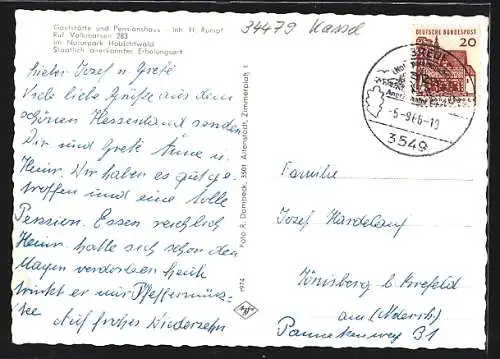 Gaststätte und Pensionshaus - Inh. H. Rumpf
Ruf Volkmarsen 283
im Naturpark Habichtwald
Staatlich anerkannter Erholungsort
34479 Kassel
DEUTSCHE BUNDESPOST
20
-5-9.66-19
3549
lieber Josef u Grete
Viele liebe Grüße aus dem
schönen Hessenland senden
Dir und Grete Änne u.
Heinr. Wir haben es gut ge-
troffen und eine tolle
Pension. Essen reichlich
Heinr. hatte sich schon den
Magen verdorben heute
trinkt er nur Pfeffermünz-
tee
Auf frohes Wiedersehn
Foto R. Dombeck, 3501 Altenstädt, Zimmerplatz 1
1974
Familie
Josef Hardelauf
Tönisberg b Krefeld
am (Niederrh)
31